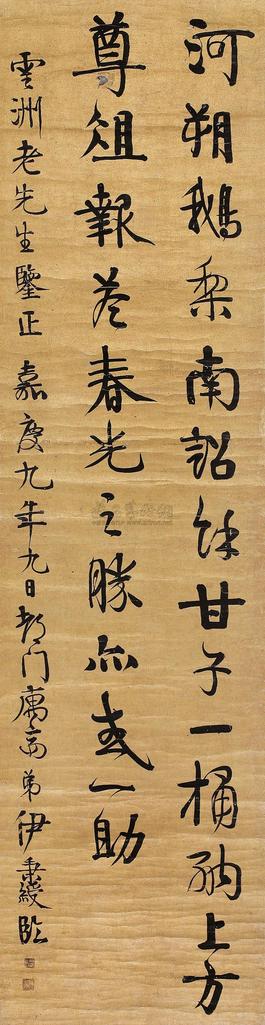 河朔鹅梨南詔余甘子一桶納上方
尊俎報答春光之勝亦或一助
雲洲老先生鑒正 嘉慶九年九日都门寓斋弟伊秉綬臨